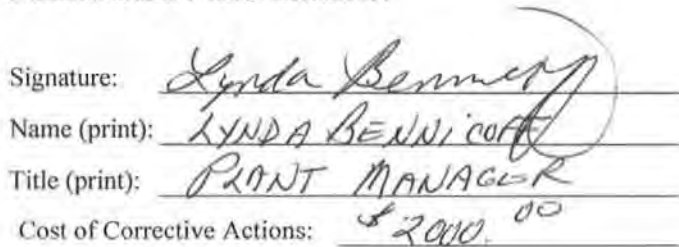 Signature: Lynda
Name (print): LYNDA BENNICOFF
Title (print): PLANT MANAGER
Cost of Corrective Actions: $2000.00